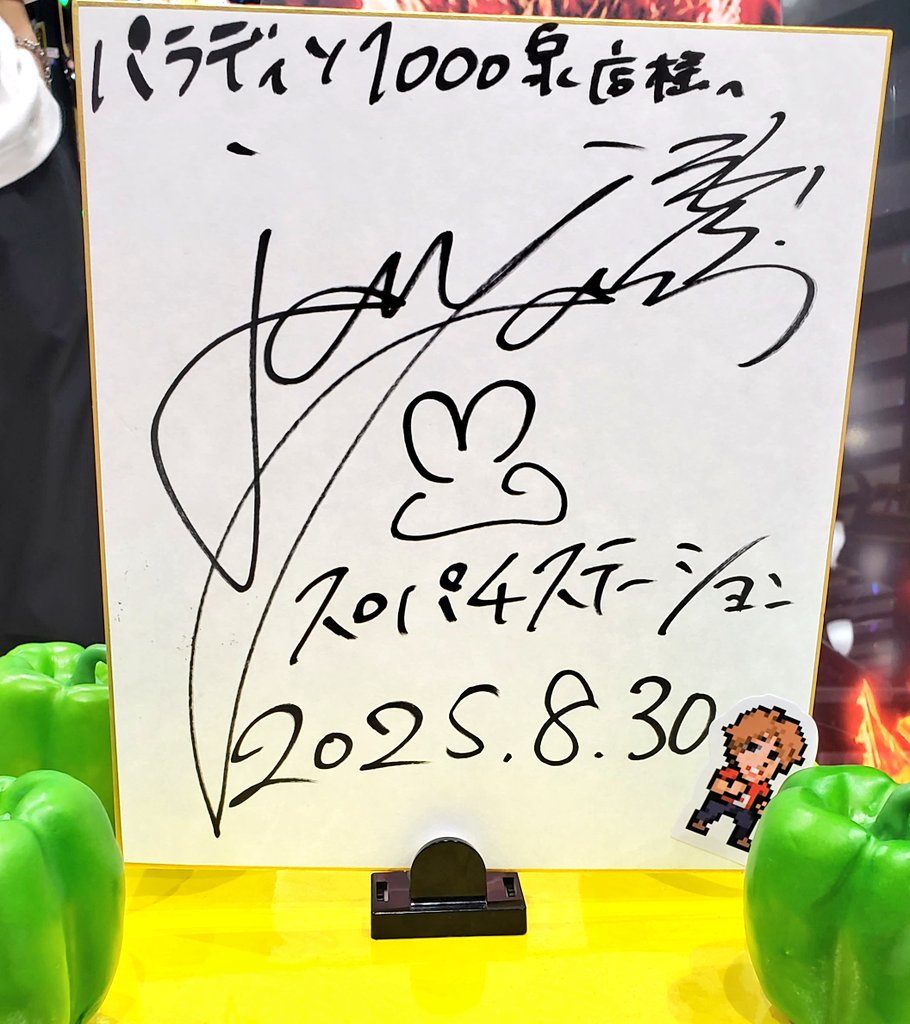 パラディソ1000泉店様へ
スロパチステーション
2025.8.30